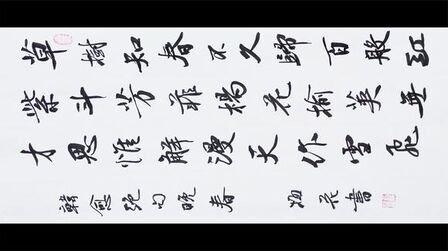 草樹知春不久歸百般紅
紫斗芳菲楊花榆莢無
才思惟解漫天作雪飛
韓愈絕句晚春 花書